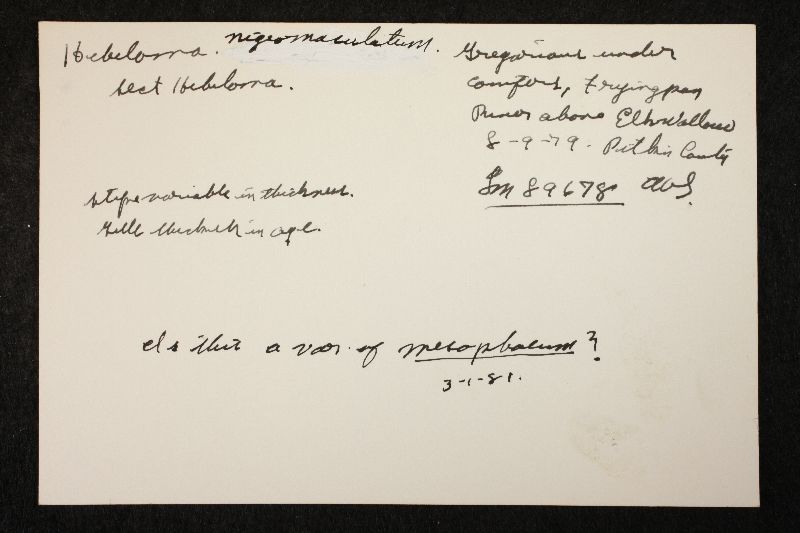 Hebeloma. nigromaculatum.
sect Hebeloma.
Gregarious under
conifers, Fryingpan
River above Elk Wallow
8-9-79. Pitkin County
Sm 89678 AHS.
stipe variable in thickness.
Gills thickish in age.
Is this a var. of mesophaeum?
3-1-81.